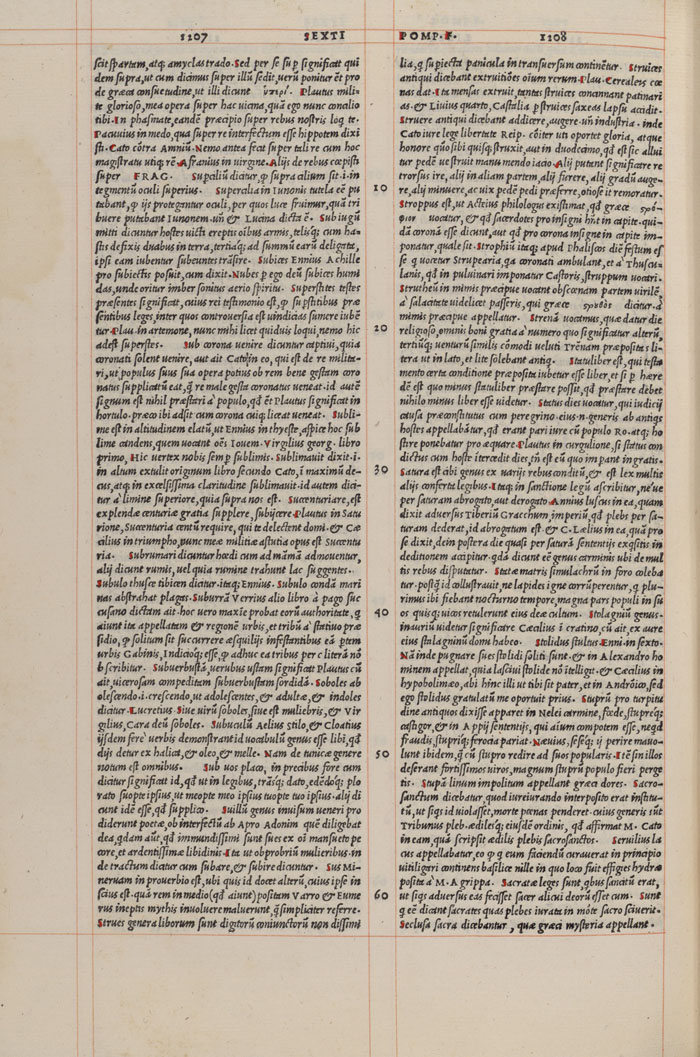 1207 SEXTI
scit spartam, atq; amyclas trado. Sed per se sup̱ significat qui
dem supra, ut cum dicimus super illũ sedit, uerũ ponitur ẽt pro
de græca consuetudine, ut illi dicunt ὑπὲρ. Plautus mili-
te glorioso, mea opera super hac uicina, quã ego nunc concilio
tibi. In phasmate, eandẽ præcipio super rebus nostris loq te.
Pacuuius in medo, qua super re interfectum esse hippotem dixi
sti. Cato cõtra Anniũ. Nemo antea fecit super tali re cum hoc
magistratu utiq; rẽ. Afranius in uirgine. Alijs de rebus cœpisti
super FRAG. Supciliũ dicitur, qđ supra cilium sit. i. in
tegmentũ oculi superius. Supercilia in Iunonis tutela eẽ pu
tabant, qđ ijs protegantur oculi, per quos luce fruimur, quã tri
buere putabant Iunonem. un & Lucina dicta ẽ. Sub iugũ
mitti dicuntur hostes uicti ereptis oĩbus armis, telisq; cum ha-
stis defixis duabus in terra, tertiaq; ad summũ earũ deligata,
ipsi eam iubentur subeuntes trãsire. Subices Ennius Achille
pro subiectis posuit, cum dixit. Nubes p̱ ego deũ subices humi
das, unde oritur imber sonitus aerio spiritu. Superstites testes
præsentes significat, cuius rei testimonio est, qđ supstitibus præ
sentibus leges, inter quos controuersia est uindicias sumere iubẽ
tur. Plau. in artemone, nunc mihi licet quiduis loqui, nemo hic
adest superstes. Sub corona uenire dicuntur captiui, quia
coronati solent uenire, aut ait Cato ĩ in eo, qui est de re milita-
ri, ut populus suus sua opera potius ob rem bene gestam coro
natus supplicatũ eat, q̃ re male gesta coronatus ueneat. id autẽ
signum est nihil præstari à populo, qđ ẽt Plautus significat in
hortulo. præco ibi adsit cum corona cuiq; liceat ueneat. Subli-
me est in altitudinem elatũ, ut Ennius in thyeste, aspice hoc sub
lime candens, quem uocant oẽs Iouem. Virgilius georg. libro
primo, Hic uertex nobis semp̱ sublimis. Sublimauit dixit. i.
in altum extulit originum libro secundo Cato, ĩ maximũ de-
cus, atq; in excelsissima claritudine sublimauit. id autem dici-
tur à limine superiore, quia supra nos est. Succenturiare, est
explendæ centuriæ gratia supplere, subijcere. Plautus in Satu
rione, Succenturia centũ require, qui te delectent domi. & Cæ
cilius in triumpho, nunc meæ militiæ astutia opus est Succentu
ria. Subrumari dicuntur hœdi cum ad mãmã admouentur,
alij dicunt rumis, uel quia rumine trahunt lac suggentes.
Subulo thusce tibicen dicitur. itaq; Ennius. Subulo condã mari
nas abstrahat plagas. Suburrã Verrius alio libro à pago suc
cusano dictam ait. hoc uero maxĩe probat eorũ authoritate, q
aiunt ita appellatam & regionẽ urbis, et tribũ à statiuo præ
sidio, qđ solitum sit succurrere æsquilijs infestantibus eã ptem
urbis Gabinis, Indicioq; esse, qđ adhuc ea tribus per c literã nõ
b scribitur. Subuerbustã, uerubus ustam significat Plautus cũ
ait, ulcerosam compeditam subuerbustam sordidã. Soboles ab
olescendo. i. crescendo, ut adolescentes, & adultæ, & indoles
dicitur. Lucretius. Siue uirũ soboles, siue est muliebris, & Vir
gilius, Cara deũ soboles. Subuculũ Aelius stilo, & Cloatius
ijsdem ferè uerbis demonstrant id uocabulũ genus esse libi, qđ
dijs detur ex halica, & oleo, & melle. Nam de tunicæ genere
notum est omnibus. Sub uos placo, in precibus fore cum
dicitur significat id, qđ ut in legibus, trãsq; dato, edẽdoq; plo
rato suopte ipsius ut meopte nto ipsius tuopte tuo ipsius. alij di
cunt idẽ esse, qđ supplico. Suillũ genus inuisum ueneri pro
diderunt poetæ, ob interfectũ ab Apro Adonim quẽ diligebat
dea, qdam aũt, qđ immundissimi sunt sues ex oĩ mansueto pe
core, et ardentissimæ libidinis. Ita ut obprobriũ mulieribus. in
de tractum dicatur cum subare, & subire dicuntur. Sus Mi-
neruam in prouerbio est, ubi quis id docet alterũ, cuius ipse in
scius est. quã rem in medio (qđ aiunt) positam Varro & Eume
rus ineptis mythis inuoluere maluerunt, q̃ simpliciter referre.
Strues genera liborum sunt digitorũ coniunctorũ non dissimi
10
20
30
40
50
60
POMP. F. 1208
lia, q subiecta panicula in transuersum continẽtur. Struices
antiqui dicebant extruitiões oĩum rerum. Plau. Cereales cœ
nas dat. Ita mensas extruit, tantas struices concinnant patinari
as. & Liuius quarto, Castalia p̱ struices saxeas lapsu accidit.
Struere antiqui dicebant addicere, augere. un̄ industria. inde
Cato iure lege libertate Reip. cõiter uti oportet gloria, atque
honore quõ sibi quisq; struxit, aut in duodecimo, qđ est sic allui
tur pedẽ ue struit manu mendo iacio. Alij putant significare re
trorsus ire, alij in aliam partem, alij fierere, alij gradũ auge-
re, alij minuere, ac uix pedẽ pedi præferre, otiose it remoratur.
Stroppus est, ut Acteius philologus existimat, qđ græce στρό-
φιον uocatur, & qđ sacerdotes pro insigni hñt in capite. qui-
dã coronã esse dicunt, aut qđ pro corona insigne in capite im-
ponatur, quale sit. Strophiũ itaq; apud Phaliscos diẽ festum es
se q uocetur Strupearia, qa coronati ambulant, et à Thuscu-
lanis, qđ in puluinari imponatur Castoris, struppum uocari.
Strutheũ in mimis præcipue uocant obscœnam partem uirilẽ
à salacitate uidelicet passeris, qui græce στρουθὸς dicitur. à
mimis præcipue appellatur. Strenã uocamus, quæ datur die
religioso, ominis boni gratia à numero quo significatur alterũ,
tertiũq; uenturũ similis cõmodi ueluti Trẽnam præposita s li-
tera ut in lato, et lite solebant antiq. Statuliber est, qui testa
mento certa conditione præposita iubetur esse liber, et si p̱ hære
dẽ est quo minus statuliber præstare possit, qđ præstare debet
nihilo minus liber esse uidetur. Status dies uocatur, qui iudicij
causa præconstitutus cum peregrino. eius. n. generis ab antiqs
hostes appellabãtur, qđ erant pari iure cũ populo Ro. atq; ho
stire ponebatur pro æquare. Plautus in curgulione, si status con
dictus cum hoste ĩtercedit dies, tñ est eũ quo impant in gratis.
Satura est cibi genus ex uarijs rebus conditũ, & est lex multis
alijs conferta legibus. Itaq; in sanctione legũ ascribitur, ne'ue
per saturam abrogato, aut derogato. Annius luscus in ea, quam
dixit aduersus Tiberiũ Gracchum, imperiũ, qđ plebs per sa-
turam dederat, id abrogatum est. & C. Lælius in ea, quã pro
se dixit, dein postera die quasi per saturã sententijs exqsitis in
deditionem accipitur. qdã dicunt eẽ genus carminis ubi de mul
tis rebus disputatur. Statuæ matris simulachrũ in foro coleba
tur. postq̃ id collustrauit, ne lapides igne corrũperentur, q plu-
rimus ibi fiebant nocturno tempore, magna pars populi in su
os quisq; uicos retulerunt eius deæ cultum. Stolagniũ genus-
inauriũ uidetur significatre Cæcilius ĩ cratino, cũ ait, ex aure
eius stalagniũ domi habeo. Stolidus stultus. Enni. in sexto.
Nã inde pugnare sues stolidi soliti sunt. & in Alexandro ho
minem appellat, quia lasciui stolide nõ ĩtelligit. & Cæcilius in
hypobolimæo, abi hinc illi ut tibi sit pater, et in Andrõico, sed
ego stolidus gratulatũ me oportuit prius. Stuprũ pro turpitu
dine antiquos dixisse apparet in Nelei carmine, fœde, stupreq;
castigor, & in Appij sententijs, qui aĩum compotem esse, neqd
fraudis, stupriq; ferocia pariat. Næuius, seseq; ij perire mauo-
lunt ibidem, q̃ cũ stupro redire ad suos popularis. Itẽ sin illos
deserant fortissimos uiros, magnum stuprũ populo fieri perge
tis. Stupã linum impolitum appellant græci dores. Sacro-
sanctum dicebatur, quod iureiurando interposito erat institu-
tũ, ut siqs id uiolasset, morte pœnas penderet. cuius generis sũt
Tribunus pleb. ædilesq; eiusdẽ ordinis, qđ affirmat M. Cato
in eam, quã scripsit ædilis plebis sacrosanctos. Seruilius la
cus appellabatur, eo qđ q eum faciendũ curauerat in principio
uitiligari continens basilicæ nille in quo loco fuit effigies hydræ
posita à M. Agrippa. Sacratæ leges sunt, qbus sancitũ erat,
ut siqs aduersus eas fecisset sacer alicui deorũ esset cum. Sunt
q eẽ dicant sacratas quas plebes iurata in mõte sacro sciuerit.
Seclusa sacra dicebantur, quæ græci mysteria appellant.